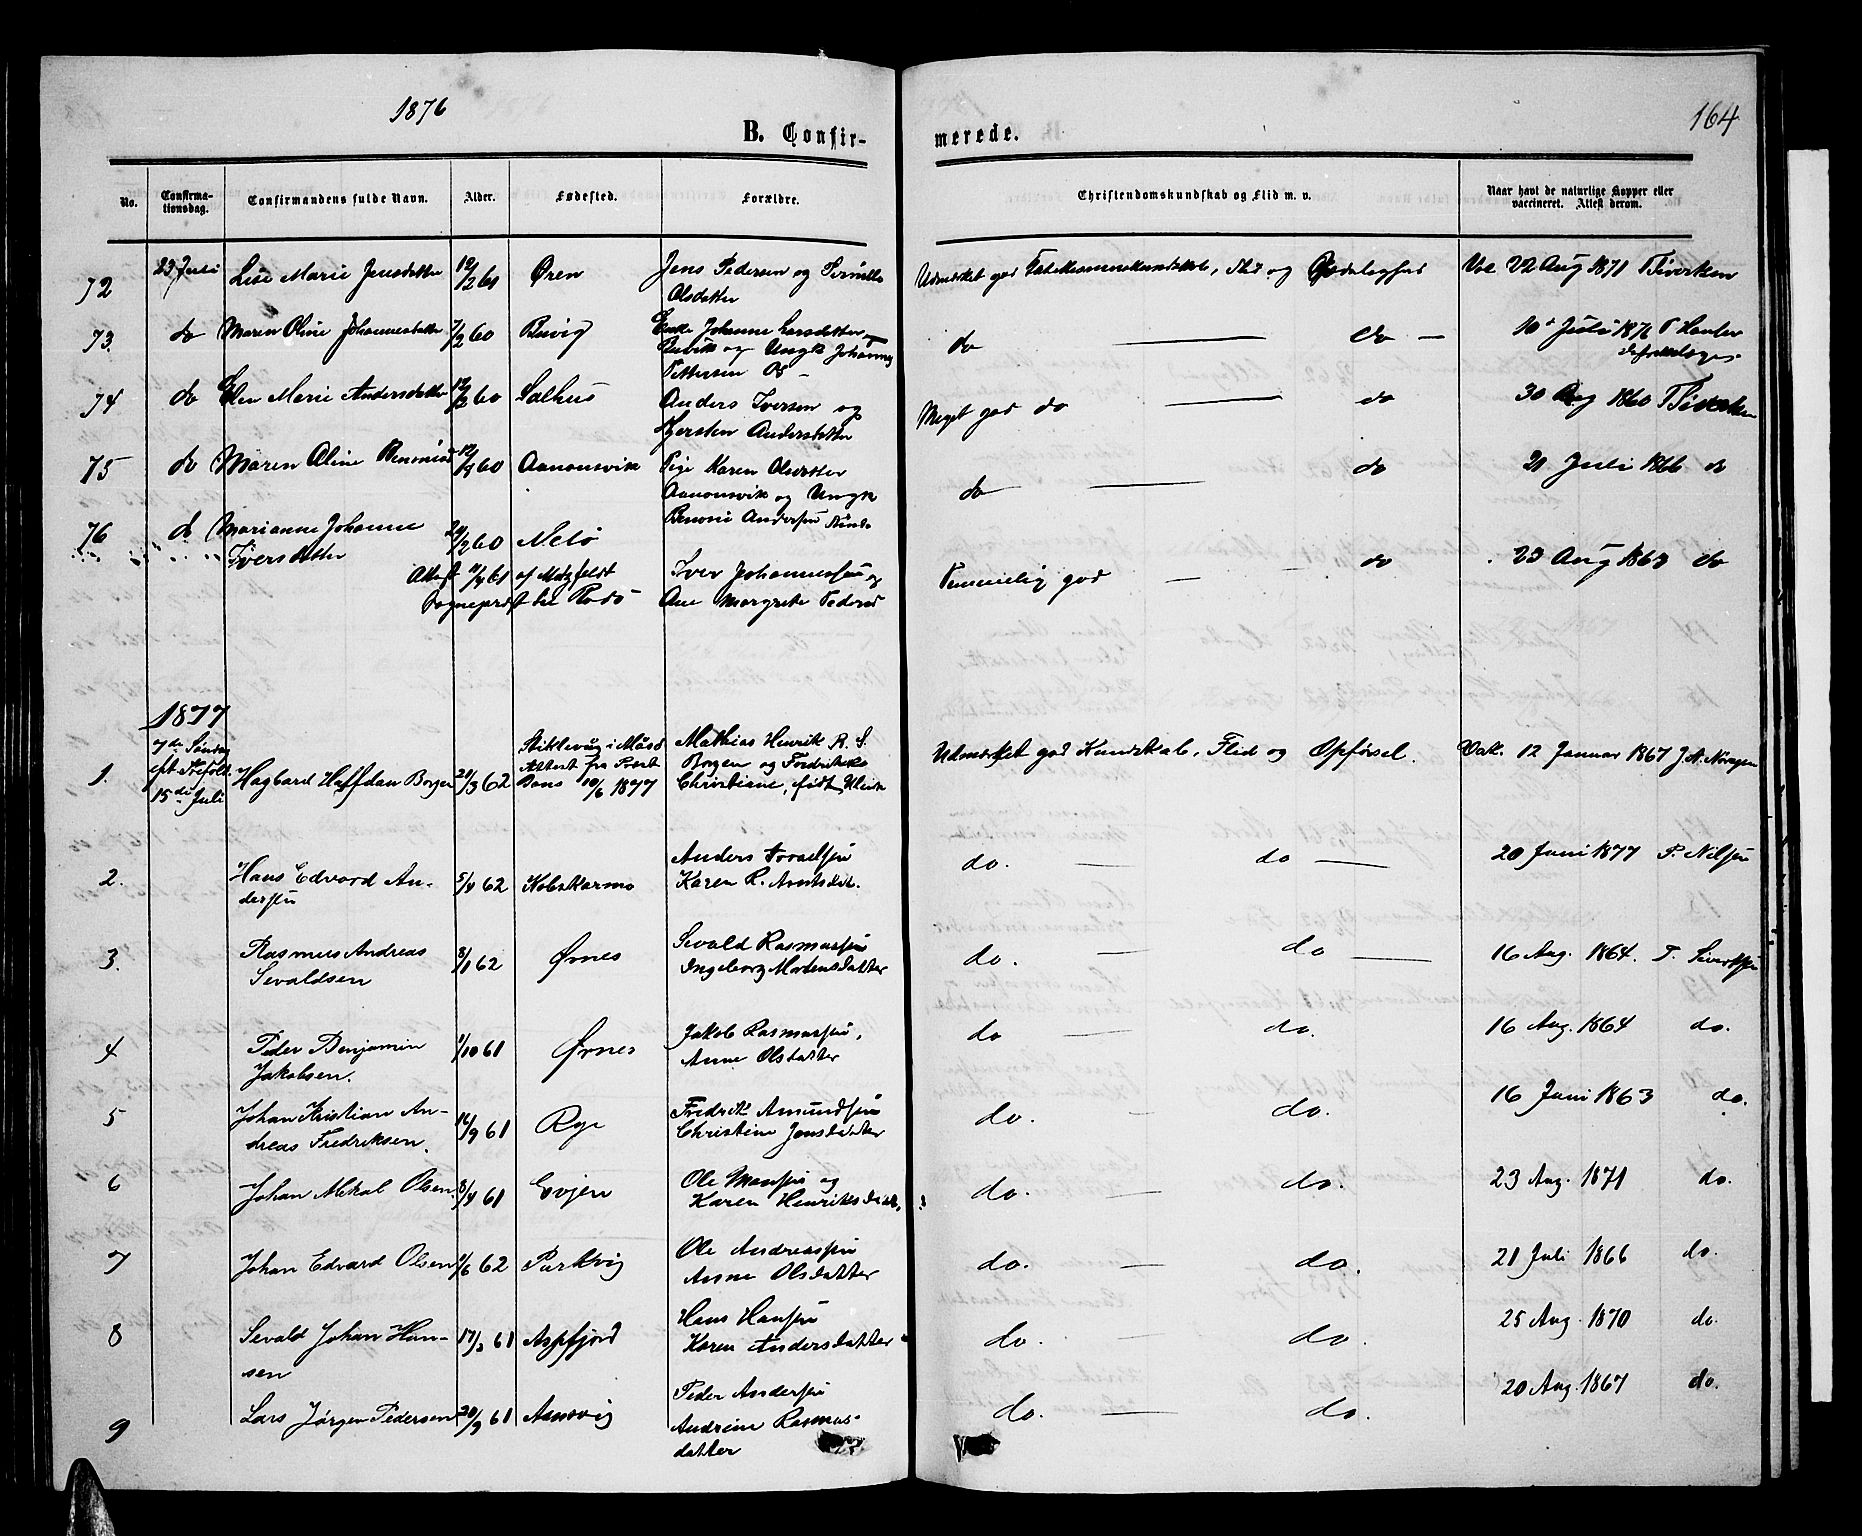 1876
164
B. Confir-
merede.
No.
Confirma-
tionsdag.
Confirmandens fulde Navn.
Alder.
Fødested.
Forældre.
Christendomskundskab og Flid m. v.
Naar havt de naturlige Kopper eller
vaccineret. Attest derom.
72 23 Juli Lise Marie Jensdatter Øren Jens Pedersen og Pernille
Olsdatter
Udmærket god Flid og 22 Aug 1871
73. do Maren Oline Johannesdatter 7/2 60 Buvig Enke Johanne Larsdatter
Buvik og Ungk Johannes
Pettersen Os
do do 10 Juli 1876
74 do Elen Marie Andersdatter 12/2 60 Salhus Anders Iversen og
Kjersten Andersdatter
Meget god do do 30 Aug 1860
75 do Maren Oline 60 Aanonsvik Pige Karen Olsdatter
Aanonsvik og Ungk
Benoni Andersen
do do 21 Juli 1866 do
76 do Marianne Johanne
Iversdatter
60 Nesø
Attest af
Sogneprest til Rødø
Iver Johannessen og
Ane Margrete Pedersd
Temmelig god do 23 Aug 1863 do
1877
7de Søndag
eft. Trefold.
15de Juli
1. Hagbard Halfdan Borgen 62 Attest fra
10/6 1877
Mathias Henrik R. S.
Borgen og Fredrikke
Christiane, født
Udmærket god Kundskab, Flid og Opførsel. Vak. 12 Januar 1867 J. A.
2. Hans Edvard An-
dersen
5/4 62 Kobskarmo Anders
Karen R. Arntsdat.
do. do 20 Juni 1877 P. Nilsen
3. Rasmus Andreas
Sevaldsen
8/1 62 Ørnes Sevald Rasmussen
Ingeborg Mortensdatter
do. do 16 Aug. 1864. T. Sivertsen
4 Peder Benjamin
Jakobsen.
/10 61 Ørnes Jakob Rasmussen,
Anne Olsdatter
do do. 16 Aug. 1864 do.
5 Johan Kristian An-
dreas Fredriksen.
16/9 61 Fredrik Amundsen
Christine Jensdatter
do. do. 16 Juni 1863 do.
6 Johan Mekal Olsen. 61 Evjen Ole Monsen og
Karen Henriksdatt.
do. do. 23 Aug. 1871 do.
7 Johan Edvard Olsen /6 62 Ole Andreassen
Anne Olsdatter
do. do. 21 Juli 1866 do.
8 Sevald Johan Han-
sen
61 Aspfjord Hans Hansen
Karen Andersdatter
do. do. 25 Aug. 1870 do.
9 Lars Jørgen Pedersen 20/9 61 Aansvig Peder Andersen
Andrine Rasmus-
datter
do. do. 20 Aug. 1867 do.